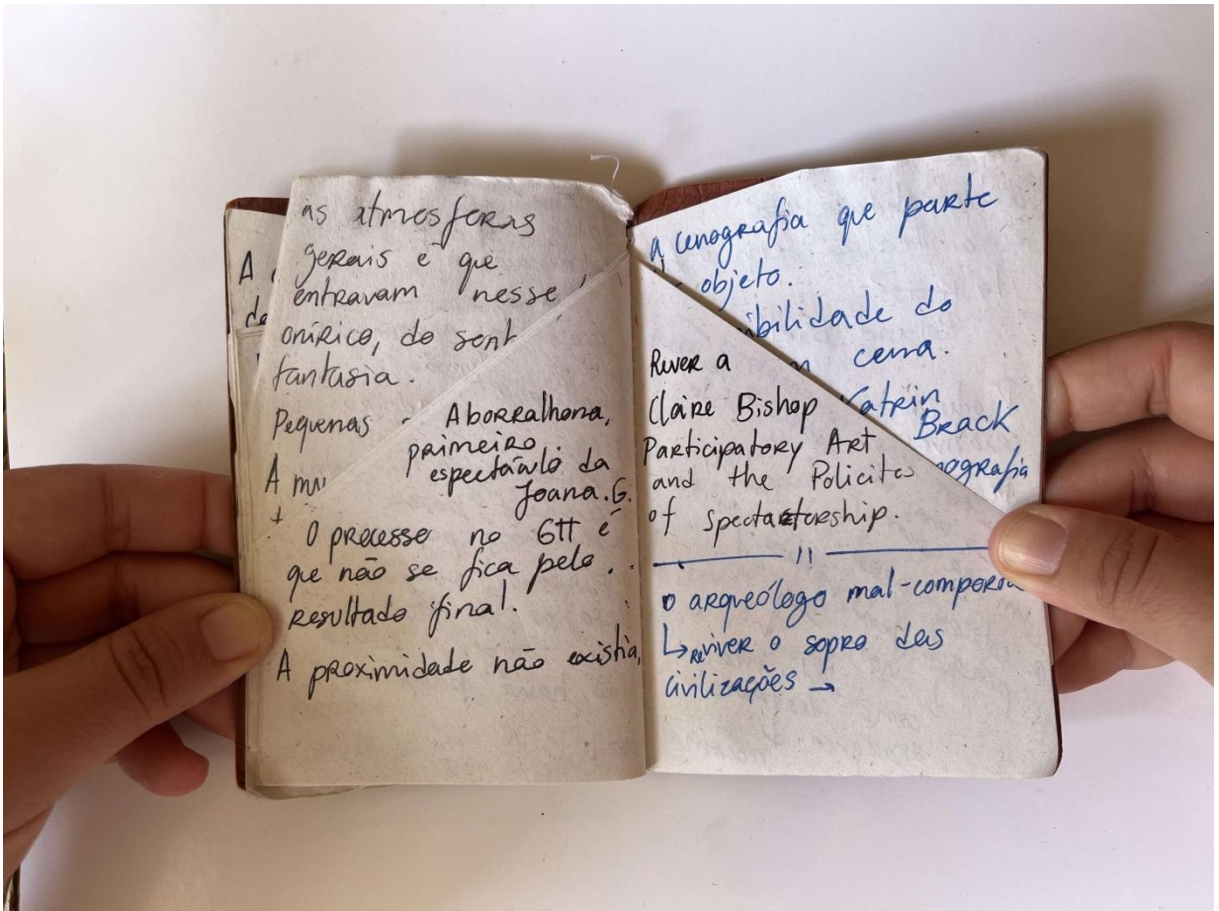 as atmosferas
gerais é que
entravam nesse
onírico, do sent
fantasia.
Pequenas
A mu
A
de
A borralhona,
primeiro
espectáculo da
Joana.G.
O processo no GTT é
que não se fica pelo
resultado final.
A proximidade não existia,
a cenografia que parte
objeto.
ibilidade do
cena.
Katrin
Brack
nografia
Rever a
Claire Bishop
Participatory Art
and the Policites
of spectactorship.
11
o arqueólogo mal-comporta
↳ reviver o sopro das
civilizações →